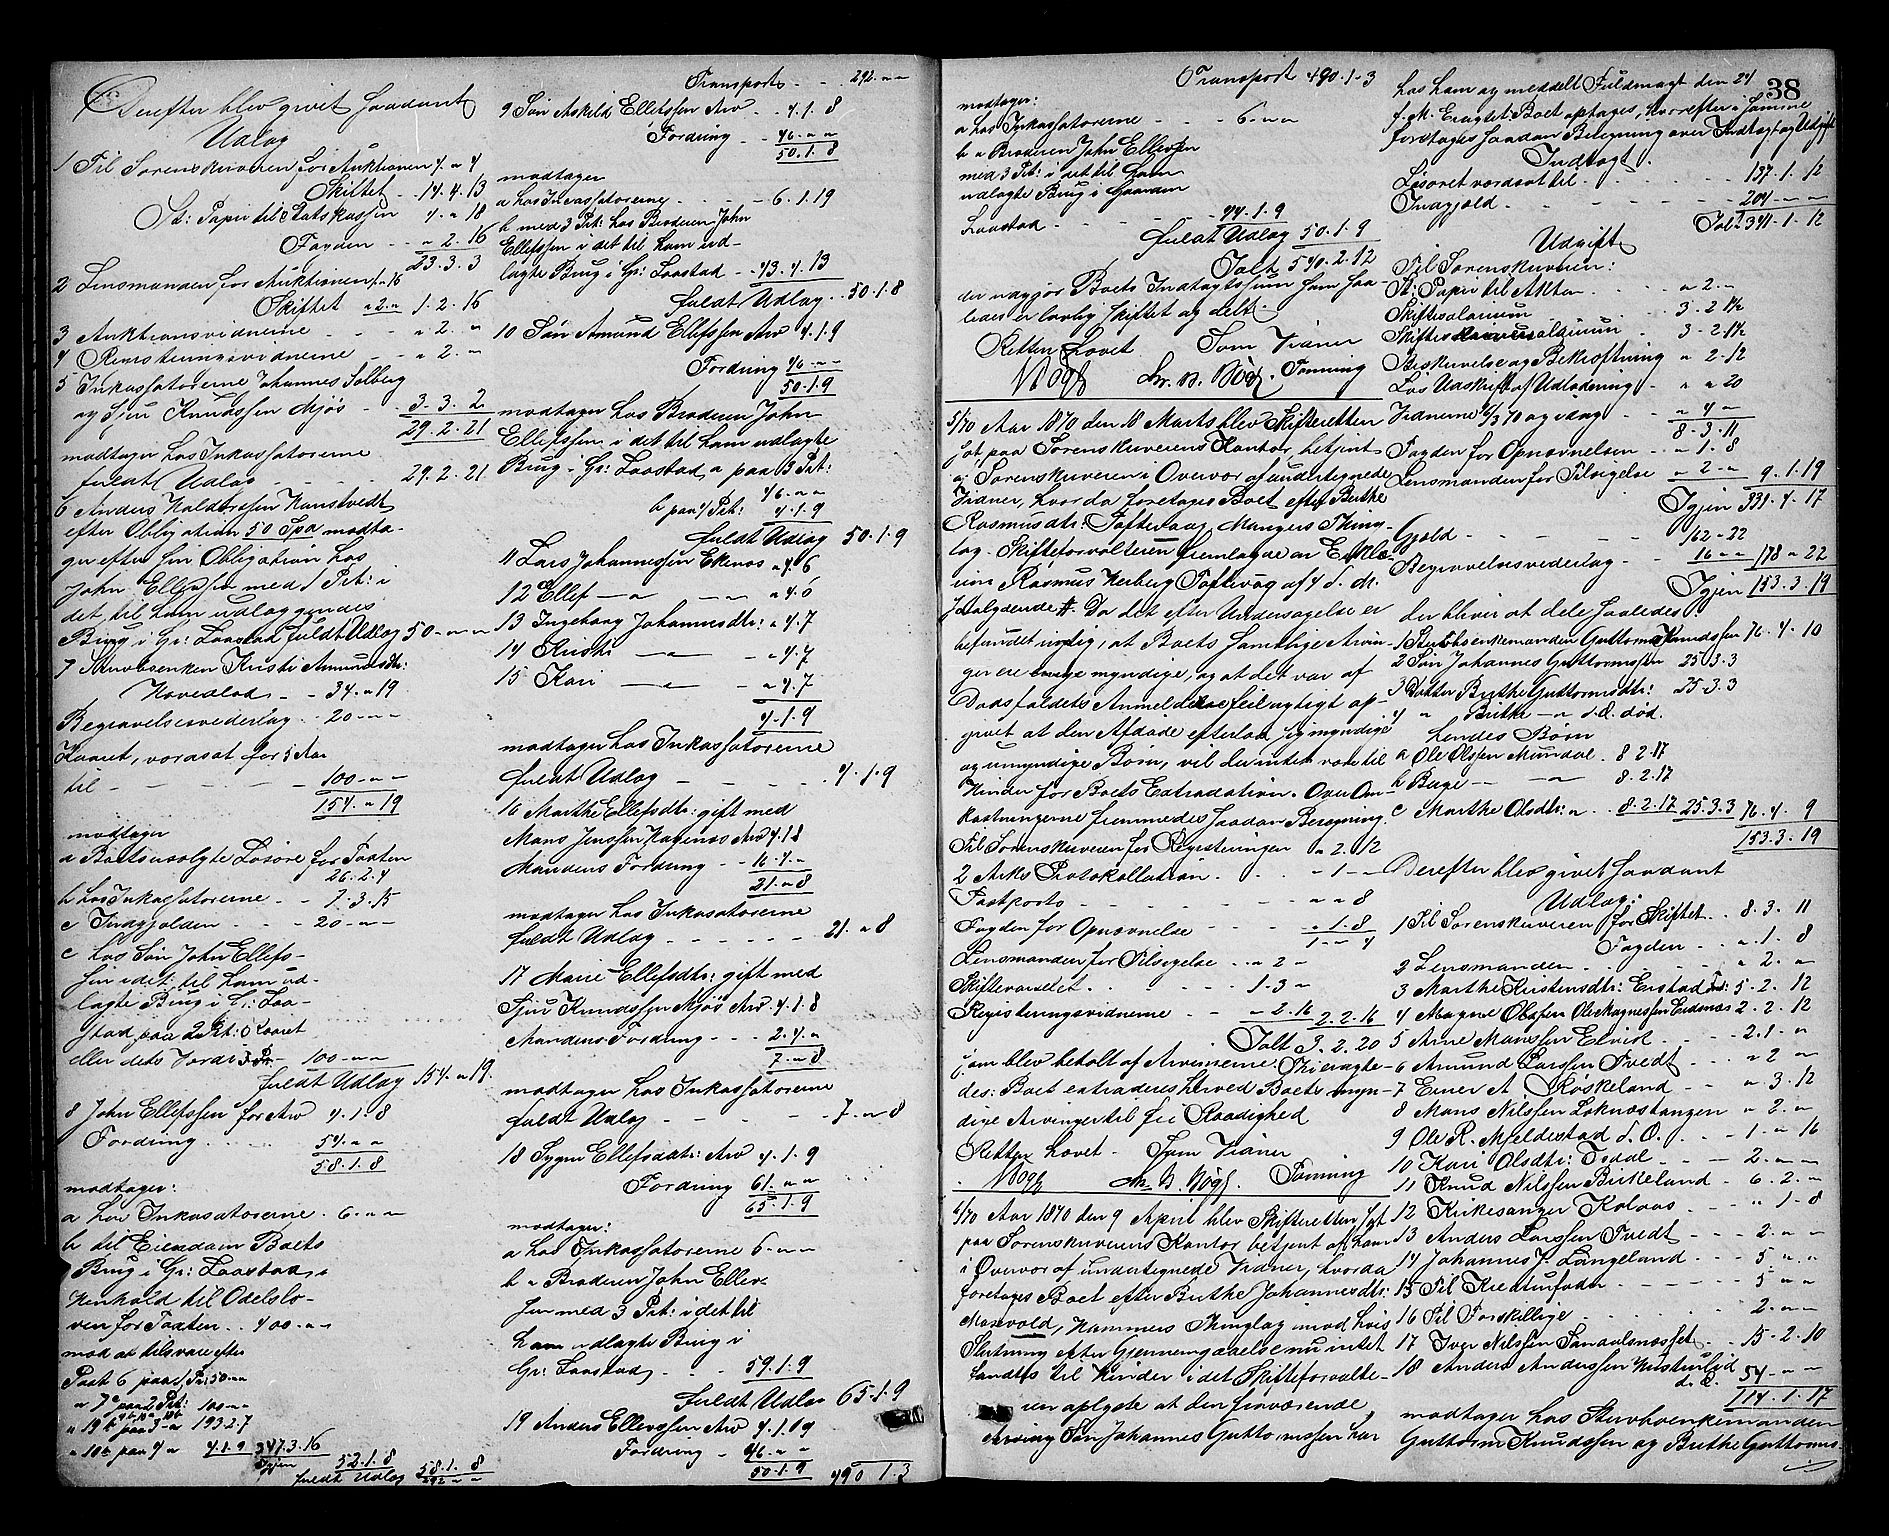 Derefter blev givet saadant
Udlæg
1 Til Sorenskriveren for Auktionen 4 . " 4
Skiftet - 14.4.13
St: Papir til Statskassen 4 . " 18
Fogden - - " 2.16
23.3.3
2 Lensmanden for Auktionen 1 - 16
Skiftet " 2 " 1.2.16
3 Auktionsvidnerne - - " 2. "
4 Registreringsvidnerne - - " 2. "
5 Inkassatorerne Johannes Solberg
og Sjur Knudssen Mjøs - 3.3.2
29.2.21
modtager hos Inkassatorerne
fuldt Udlæg - - - - 29.2.21
6 Anders Haldorsen Hanstvedt
efter Obligation 50 Spd modta-
ger efter sin Obligation hos
John Ellefssen med 1 Prt: i
det til ham udlæggendes
Brug i Gr: Laastad fuldt Udlæg 50 - " - "
7 Arvebenken Kristi Amundsdtr:
Hovedlod - - 34. " 19
Begravelsesvederlag . . 20 - " - "
Kaaret, vorderet for 5 Aar
til - - - - 100 - " - "
154. " 19
modtager
a Boets usolgte Løsøre for Taxten
26.2.4
b hos Inkassatorerne - - 7.3.15
c Indgjælden - - - 20 - " - "
c hos Søn John Ellefs-
sen i det til ham ud-
lagte Brug i Gr: Laa-
stad paa 2 Prt: Kaaret
eller dets Værdi 100 - " - "
fuldt Udlæg 154. " 19
8 John Ellefssen for Arv 4.1.8
Fordring . . . . 54. " "
58.1.8
modtager:
a hos Inkasatorerne . 6. " "
b til Eiendom Boets
Brug i Gr: Laastad i
Henhold til Odelslo-
ven for Taxten . . 400 - " - "
mod at tilsvare efter
Post 6 paa 1 Pr: 50 - " "
" 7 c paa 2 Prt: 100 - " "
" 19 b paa 3 - " 193.2.7
" 10 b paa 4 " 4.1.9 347.3.16
Igjen 52.1.8
fuldt Udlæg 58.1.8
292 " "
Transport - - 292 - " "
9 Søn Askild Ellefssen Arv - . 4.1.8
Fordring - - 46. " "
50.1.8
modtager
a hos Inkassatorerne - - - - 6.1.19
b med 3 Prt: hos Broderen John
Ellefssen i det til ham ud-
lagte Brug i Gr: Laastad - . 43.4.13
fuldt Udlæg . . 50.1.8
10 Søn Amund Ellefssen Arv 4.1.9
Fordring 46 - " "
50.1.9
modtager hos Broderen John
Ellefssen i det til ham udlagte
Brug i Gr: Laastad a paa 3 Prt:
46 - " "
b paa 4 Prt: 4.1.9
fuldt Udlæg 50.1.9
11 Lars Johannessen Ekenæs " 4.6
12 Ellef - " - " 4.6
13 Ingeborg Johannesdtr: " 4.7
14 Kristi - " - " 4.7
15 Kari - " - " 4.7
4.1.9
modtager hos Inkassatorerne
fuldt Udlæg - - - - . 4.1.9
16 Marthe Ellefsdtr: gift med
Mons Jenssen Hagenæs Arv 4.1.8
Mandens Fordring - - 16.4. "
21. " 8
modtager hos Inkasatorerne
fuldt Udlæg - - - - - 21. " 8
17 Marie Ellefsdtr: gift med
Sjur Knudssen Mjøs Arv 4.1.8
Mandens Fordring - - - 2.4. "
7. " 8
modtager hos Inkassatorerne
fuldt Udlæg - - - - - - 7. " 8
18 Synni Ellefsdatr: Arv 4.1.9
Fordring 61. " "
65.1.9
modtager:
a hos Inkassatorerne 6 - " "
b " Broderen John Ellev-
sen med 3 Prt: i det til
ham udlagte Brug i
Gr: Laastad - - - 59.1.9
fuldt Udlæg 65.1.9
19 Anders Ellevssen Arv 4.1.09
Fordring - - 46. " "
50.1.9 490 1.3
Transport 490.1.3
modtager:
a hos Inkassatorerne - - - 6. " "
b " Broderen John Ellevsen
med 3 Prt: i det til ham
udlagte Brug i Gaarden
Laastad - - - - - 44.1.9
fuldt Udlæg 50.1.9
Ialt 540.2.12
der udgjør Boets Indtægtssum som saa-
ledes er lovlig skiftet og delt.
Retten hævet. Som Vidner
Chr. B. Bøgh. Tønning
5/70 Aar 1870 den 18 Marts blev Skifteretten
sat paa Sorenskriverens Kontor, betjent
af Sorenskriveren i Overvær af undertegnede
Vidner, hvorda foretoges Boet efter Brithe
Rasmusdtr: Toftevaag, Mangers Thing-
lag. Skifteforvalteren fremlagde en Erklæ-
ring Rasmus Herberg Toftevaag af 4 d. M.
saalydende #. Da det efter Undersøgelse er
befundet rigtig, at Boets samtlige Arvin-
ger ere myndige, og at det var af
Dødsfaldets Anmeldelse feilagtigt op-
givet at den Afdøde efterlod sig myndige
og umyndige Børn, vil der intet være til
Hinder for Boets Extradation. Over Om-
kostningerne fremmedes saadan Beregning
Til Sorenskriveren for Registreringen " 2.12
2 Arks Protokollation . . . . " 1 - "
Postporto - - - - - - - " " 8
Fogden for Opnævnelse - - - " 1.8
1 - " 4
Lensmanden for Tilsigelse . . " 2 - "
Skifteværdet . . - - - - 1.3 "
Registreringsvidnerne - - " 2.16 2.2.16
Ialt 3.2.20
som blev betalt af Arvingerne. Thi eragte-
des: Boet extraderes herved Boets myn-
dige Arvinger til fri Raadighed
Retten hævet. Som Vidner
Chr. B. Bøgh. Tønning
6/70 Aar 1870 den 9 April blev Skifteretten sat
paa Sorenskriverens Kontor betjent af ham
i Overvær af undertegnede Vidner, hvorda
foretoges Boet efter Brithe Johannesdtr:
Monvold, Hammers Thinglag imod hvis
Slutning efter Gjennemgaaelse nu intet
sandtes til Hinder i det Skifteforvalte-
ren oplyste at den fraværende
Arving Søn Johannes Guttormssen har
38
hos ham og meddelt Fuldmagt den 24
f. M. Eragtet Boet optages, hvorefter i samme
foretoges saadan Beregning over Indtægt og Udgift
Indtægt.
Løsøret vurderet til - - - - - 137.1.12
Indgjæld - - - - - - - 204 - " -
Ialt 341.1.12
Udgift
Til Sorenskriveren:
St: Papir til Akten - - - " 2 - "
Skiftesalarium - - - 3.2.1½
Skifteskriversalarium - - 3.2.1½
Beskrivelse og Bekræftning " 2.12
Løs Udskrift af Udlodning - " " 20
Vidnerne 4/3 70 og idag - - " 4 "
8.3.11
Fogden for Opnævnelsen - - " 1.8
Lensmanden for Tilsigelse " 2 - " 9.1.19
Igjen 331.4.17
Gjæld - - - - - 162 " 22
Begravelsesvederlag - - 16 - " 178 " 22
Igjen 153.3.19
der bliver at dele saaledes
1 Stervboenkemanden Guttorm Knudssen 76.4.10
2 Søn Johannes Guttormssen 25.3.3
3 Datter Brithe Guttormsdtr: 25.3.3
4 " Brithe - " d. Æ. død.
hendes Børn
a Ole Olsen Mundal . 8.2.17
b Børge - - " - 8.2.17
c Marthe Olsdtr: " . . 8.2.17 25.3.3 76.4.9
153.3.19
Derefter blev givet saadant
Udlæg:
1 Til Sorenskriveren for Skiftet . . 8.3.11
Fogden - - " . 1.8
2 Lensmanden . . . . . . " 2. "
3 Marthe Kristensdtr: Erstad 5.2.12
4 Magne Olsen 2.2.12
5 Arne Monssen Elvik . - - - 2.1. "
6 Amund Larssen Tvedt - - " 2 "
7 Elner A Røskeland - - " 3.12
8 Mons Nilssen Loknæstangen " 2. "
9 Ole R. Mjeldestad d. Æ. . . - 1. " 16
10 Kari Olsdtr: Isdal - - - 2. " "
11 Knud Nilssen Birkeland - 6.2. "
12 Kirkesanger Kolaas - - - " 1.8
13 Anders Larssen Tvedt - - - 2. " "
14 Johannes J. Langeland - - - 5. " "
15 Til Kreaturfoder - - - - - - 5 " "
16 Til Forskellige . . . . . . 2. " "
17 Iver Nilssen Sandalsnæsset . . 15.2.10
18 Anders Anderssen Husturlid
d. Æ. 54 - " "
114.1.17
modtager hos Stervboenkemanden
Guttorm Knudssen og Brithe Guttorms-